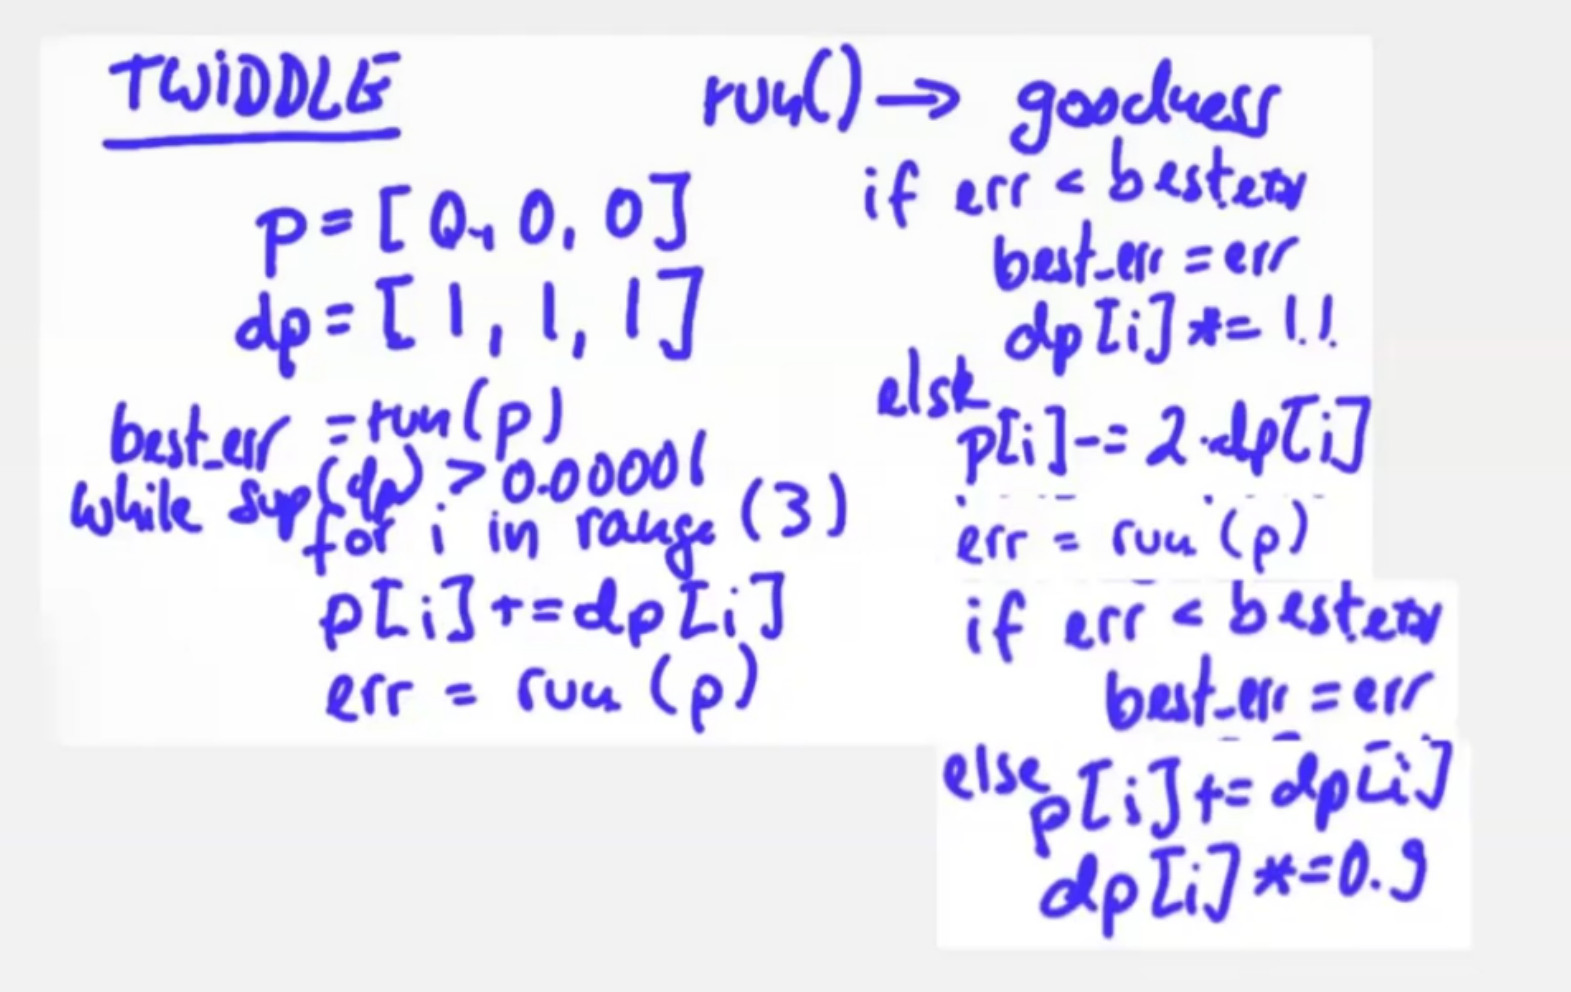 TWIDDLE
p = [0, 0, 0]
dp = [1, 1, 1]
best_err = run(p)
while sup(dp) > 0.00001
for i in range (3)
p[i] += dp[i]
err = run (p)
run() → goodness
if err < best_err
best_err = err
dp[i] *= 1.1
else
p[i] -= 2·dp[i]
err = run (p)
if err < best_err
best_err = err
else
p[i] += dp[i]
dp[i] *= 0.9